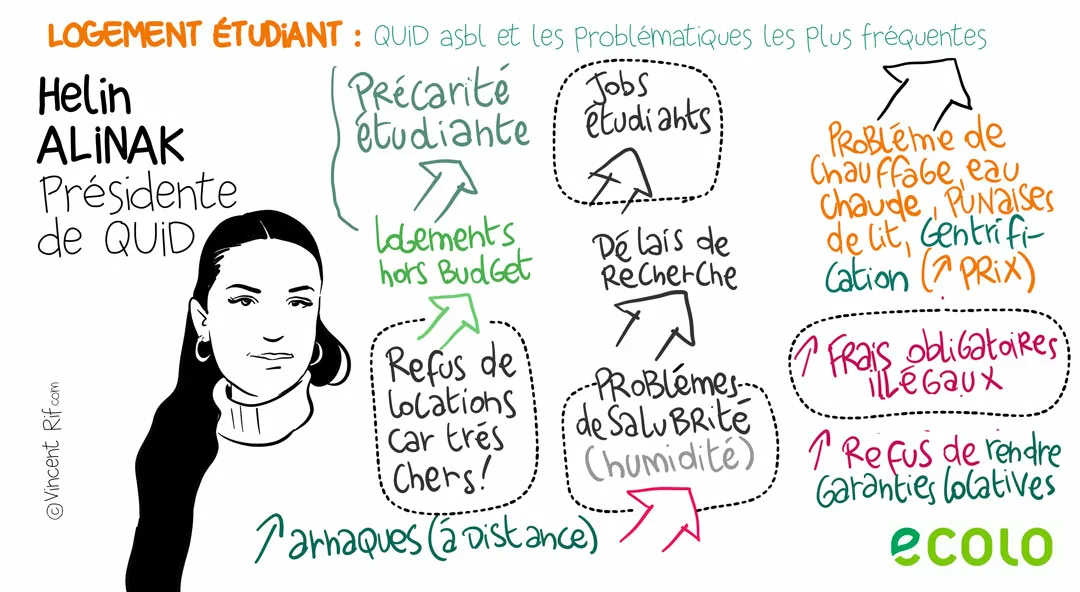 LOGEMENT ÉTUDiANT : QUiD asbl et les Problématiques les Plus fréquentes
Helin
ALiNAK
Présidente
de QUiD
Précarité
étudiante
Logements
hors Budget
Refus de
locations
car trés
chers!
Jobs
étudiants
Délais de
Recherche
Problémes
de Salubrité
(humidité)
↗ arnaques (á Distance)
Probléme de
Chauffage, eau
chaude, Punaises
de lit, Gentrifi-
cation (↗ Prix)
↗ Frais obligatoires
illégaux
↗ Refus de rendre
Garanties locatives
ecolo
©Vincent Rif.com